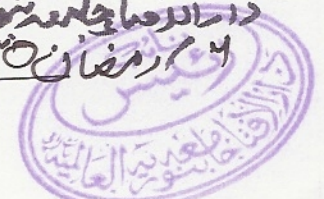 دارالافتاء جامعہ بنوریہ
۶ / رمضان
رئیس
دارالافتاء جامعہ بنوریہ العالمیہ